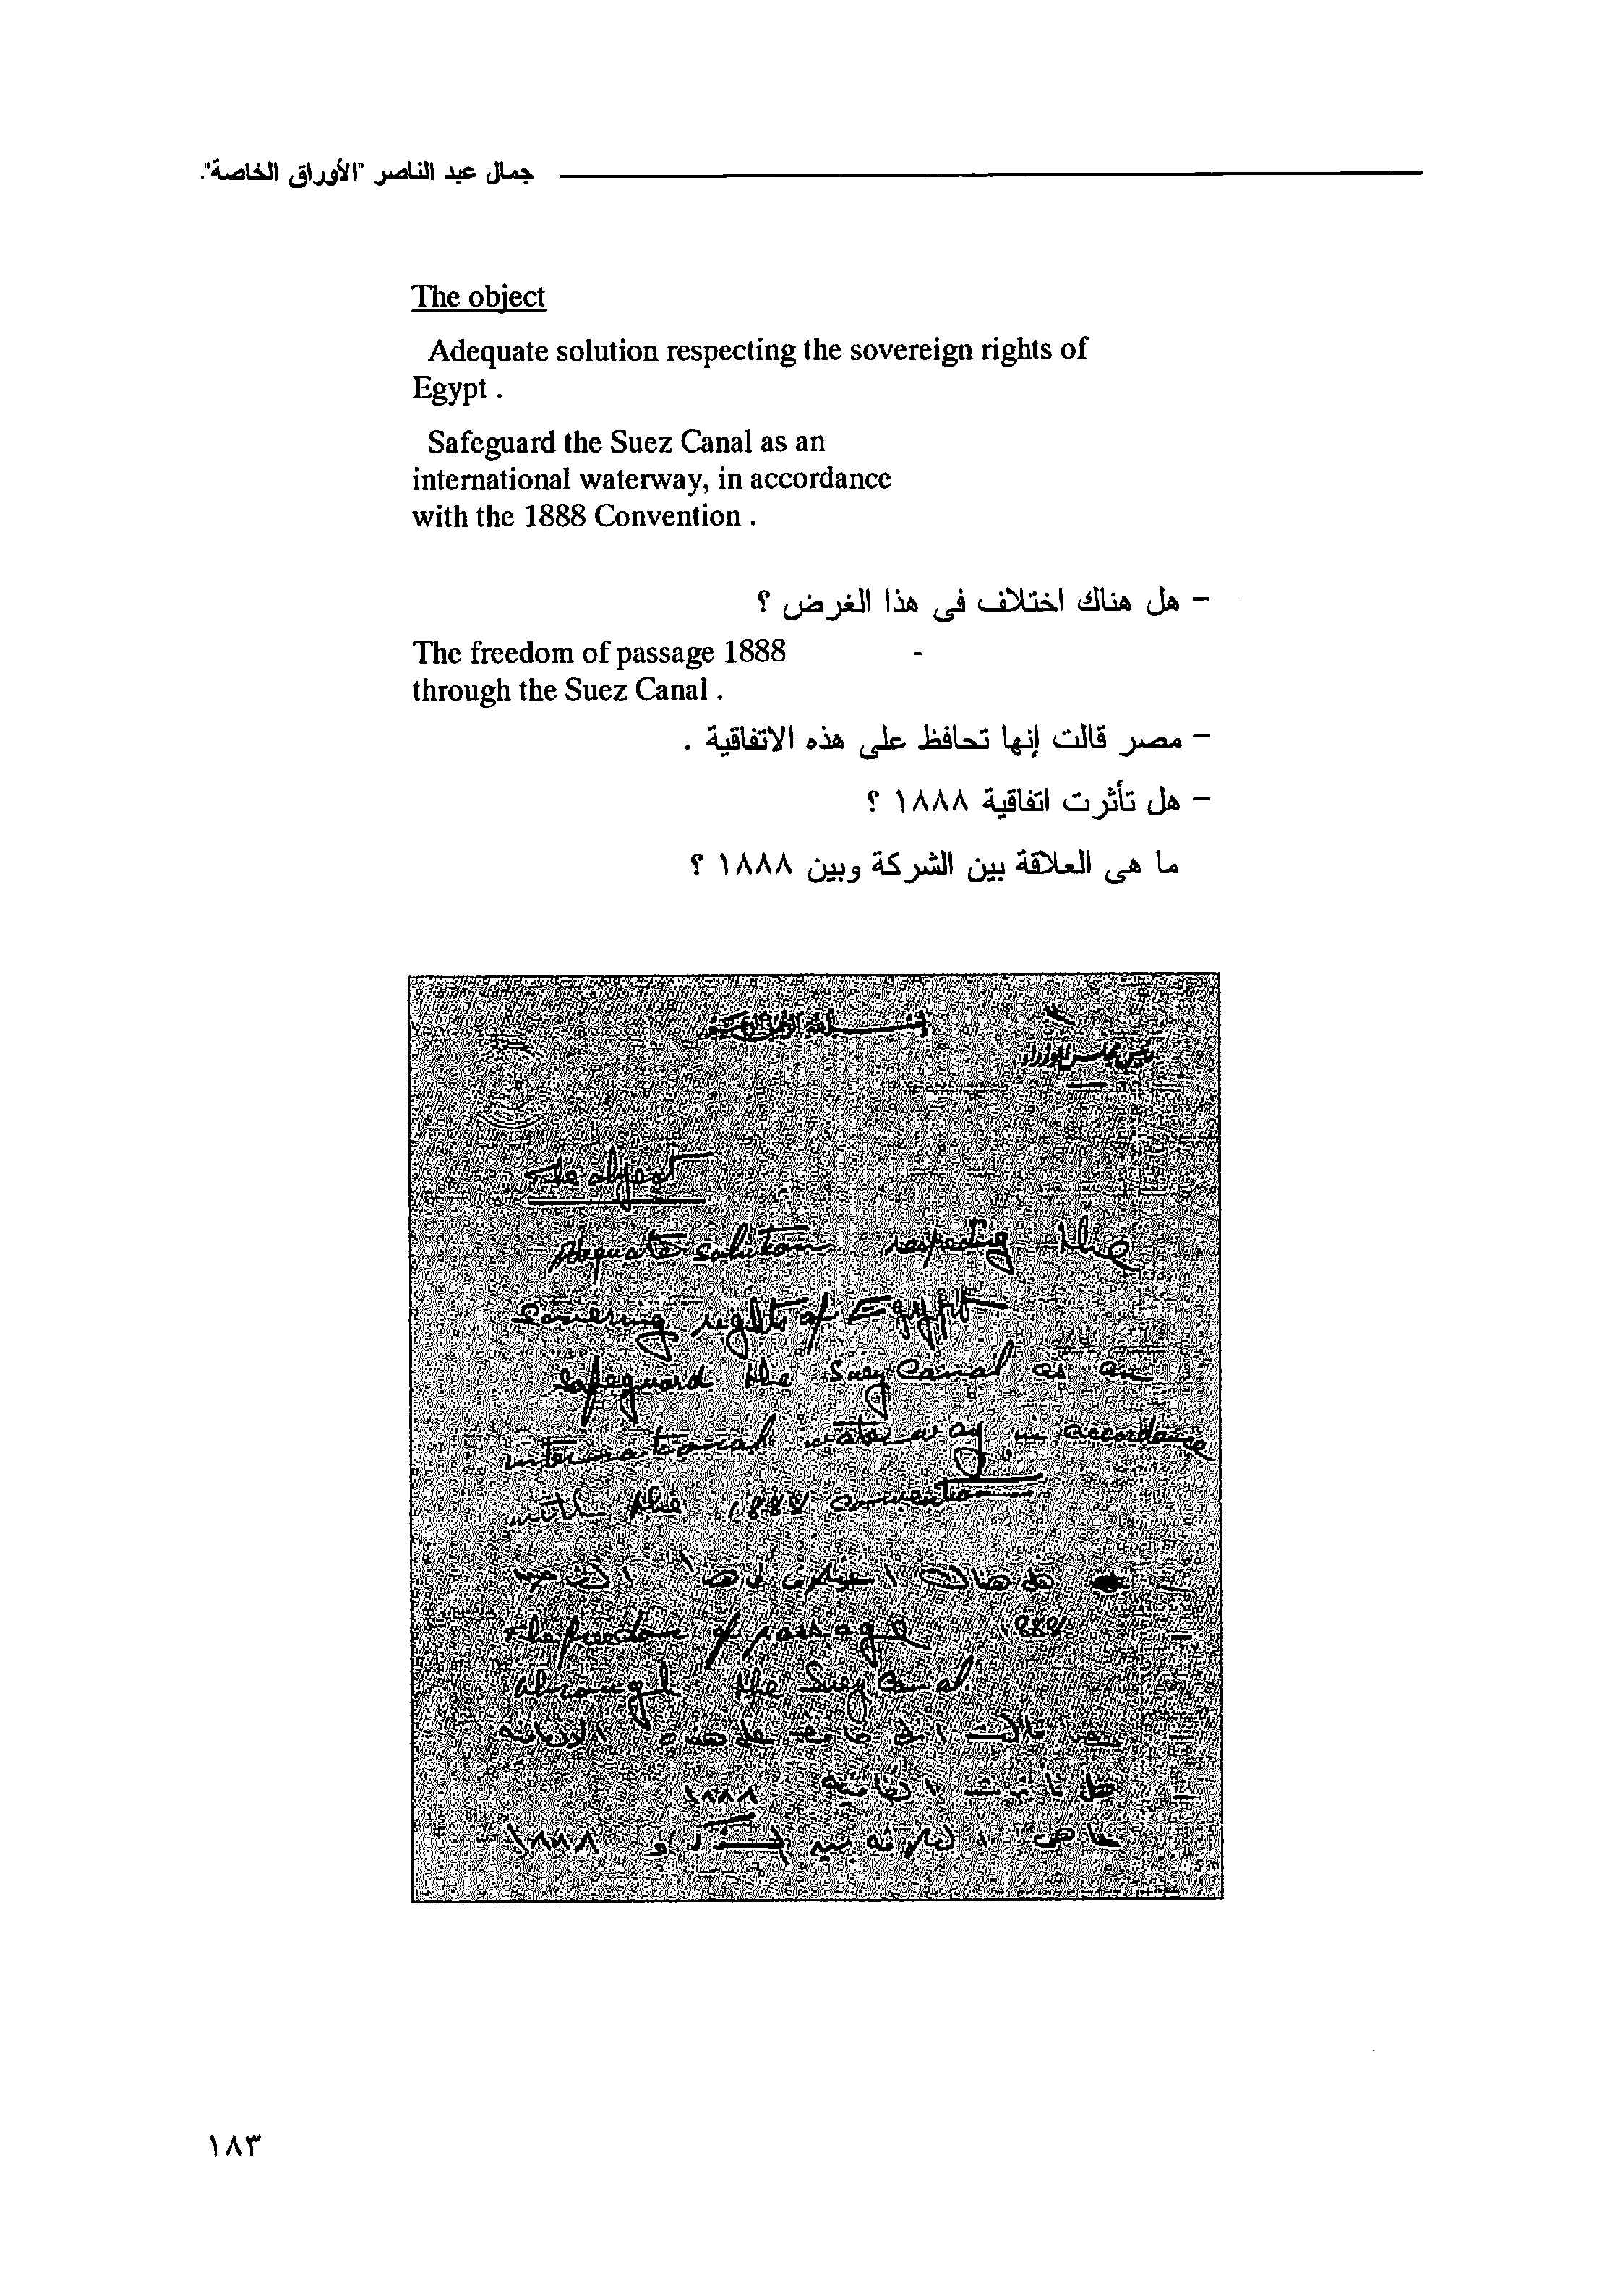 جمال عبد الناصر "الأوراق الخاصة".
The object
Adequate solution respecting the sovereign rights of
Egypt .
Safeguard the Suez Canal as an
international waterway, in accordance
with the 1888 Convention .
- هل هناك اختلاف فى هذا الغرض ؟
The freedom of passage 1888 -
through the Suez Canal .
- مصر قالت إنها تحافظ على هذه الاتفاقية .
- هل تأثرت اتفاقية ١٨٨٨ ؟
ما هى العلاقة بين الشركة وبين ١٨٨٨ ؟
رئيس مجلس الوزراء
The object
Adequate solution respecting the
Sovereing rights of Egypt.
Safeguard the Suez Canal as an
international waterway, in accordance
with the 1888 convention
هل هناك اختلاف فى هذا الغرض
The freedom of passage 1888 -
through the Suez Canal.
- مصر قالت انها تحافظ على هذه الاتفاقيه
- هل تأثرت اتفاقيه ١٨٨٨
ما هى العلاقه بين الشركه و ١٨٨٨
١٨٣